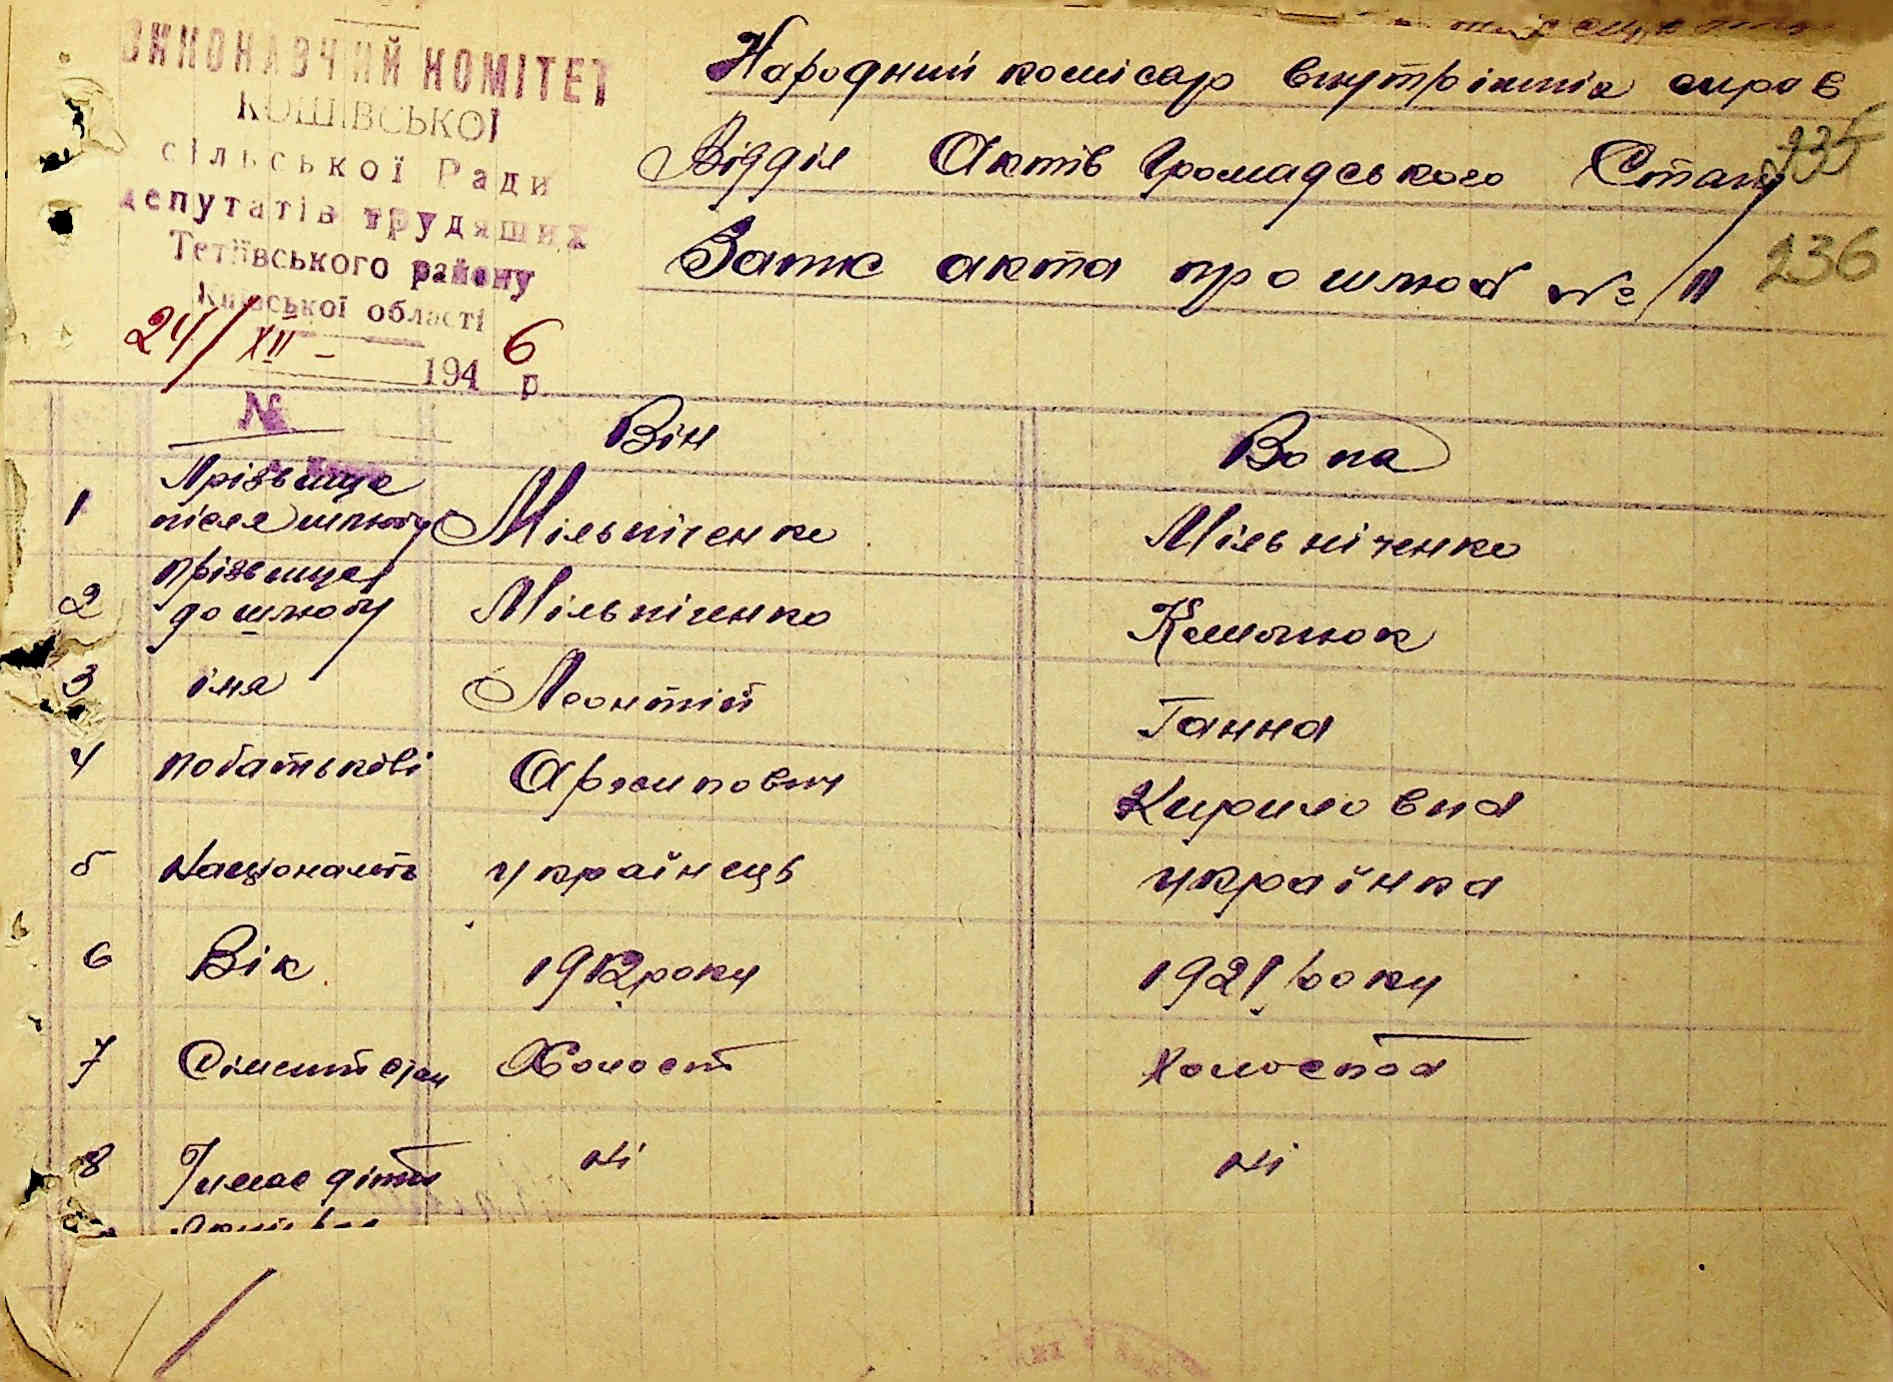 ВИКОНАВЧИЙ КОМІТЕТ
КОШІВСЬКОЇ
сільської Ради
депутатів трудящих
Тетіївського району
Київської області
24/XII - 1946 р.
Народний комісар внутрішніх справ
Відділ Актів Громадського Стану
235
Запис акта про шлюб № 11
236
№ Він Вона
1 Прізвище після шлюбу Мільніченко Мільніченко
2 прізвище до шлюбу Мільніченко
3 імя Леонтій Ганна
4 побатькові Архипович Кириловна
5 Національ українець українка
6 Вік 1912 року 1921 року
7 стан Холост Холостая
8 дітей ні ні